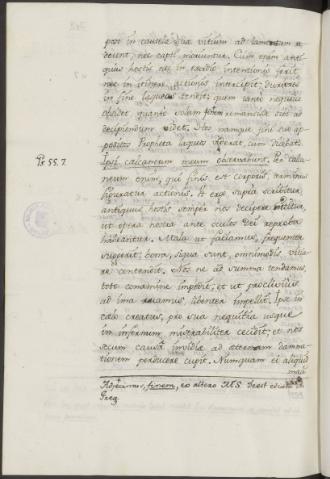 quo in cautela sua vitium ad
decent, nec capti moventur. Cum enim anti-
quus hostis nec in exordio intentionis ferit,
nec in itinere actionis intercipit, duriores
in fine laqueos tendit; quem tanto nequius
obsidet, quanto solum sibi remansisse
ad decipiendum videt. Hos namque fini suo ap-
positos Propheta laqueos viderat, cum dicebat:
Ps. 55. 7.
Ipsi calcaneum meum observabunt. Per calca-
neum enim, qui finis est corporis, terminus
figuratur actionis. Ex supra
antiquus hostis semper nos decipere
ut opera nostra ante oculos Dei
habeantur. Mala ut faciamus, frequenter
suggerit; bona, siqua sunt, omnimodis vitia-
re contendit. Nos ne ad summa tendamus,
toto conamine impedit; et ut proclivius
ad ima ruamus, libenter impellit. Ipse in
caelo creatus, pro sua nequitia usque
in infernum miserabiliter cecidit; et nos
secum causa invidiae ad aeternam damna-
tionem perducere cupit. Numquam ei aliquid
mali
finem, ex altero MS. deest
Greg.